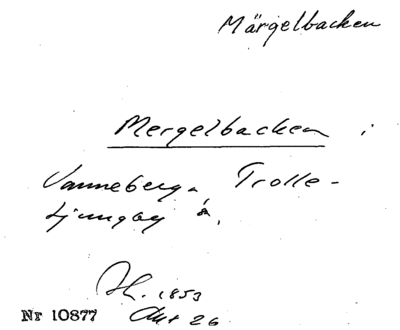 Märgelbacken
Mergelbacken i
Vanneberga, Trolle-
Ljungby s.
1853
Nr 10877 Akt 26